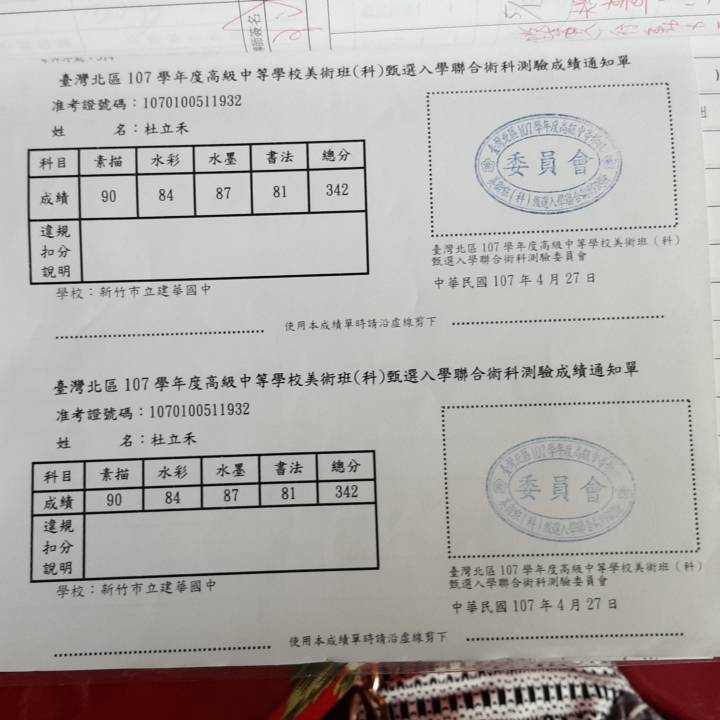 臺灣北區107學年度高級中等學校美術班(科)甄選入學聯合術科測驗成績通知單
准考證號碼：1070100511932
姓 名：杜立禾
科目 素描 水彩 水墨 書法 總分
成績 90 84 87 81 342
違規
扣分
說明
學校：新竹市立建華國中
委員會
臺灣北區107學年度高級中等學校美術班（科）
甄選入學聯合術科測驗委員會
中華民國107年4月27日
使用本成績單時請沿虛線剪下
臺灣北區107學年度高級中等學校美術班(科)甄選入學聯合術科測驗成績通知單
准考證號碼：1070100511932
姓 名：杜立禾
科目 素描 水彩 水墨 書法 總分
成績 90 84 87 81 342
違規
扣分
說明
學校：新竹市立建華國中
委員會
臺灣北區107學年度高級中等學校美術班（科）
甄選入學聯合術科測驗委員會
中華民國107年4月27日
使用本成績單時請沿虛線剪下